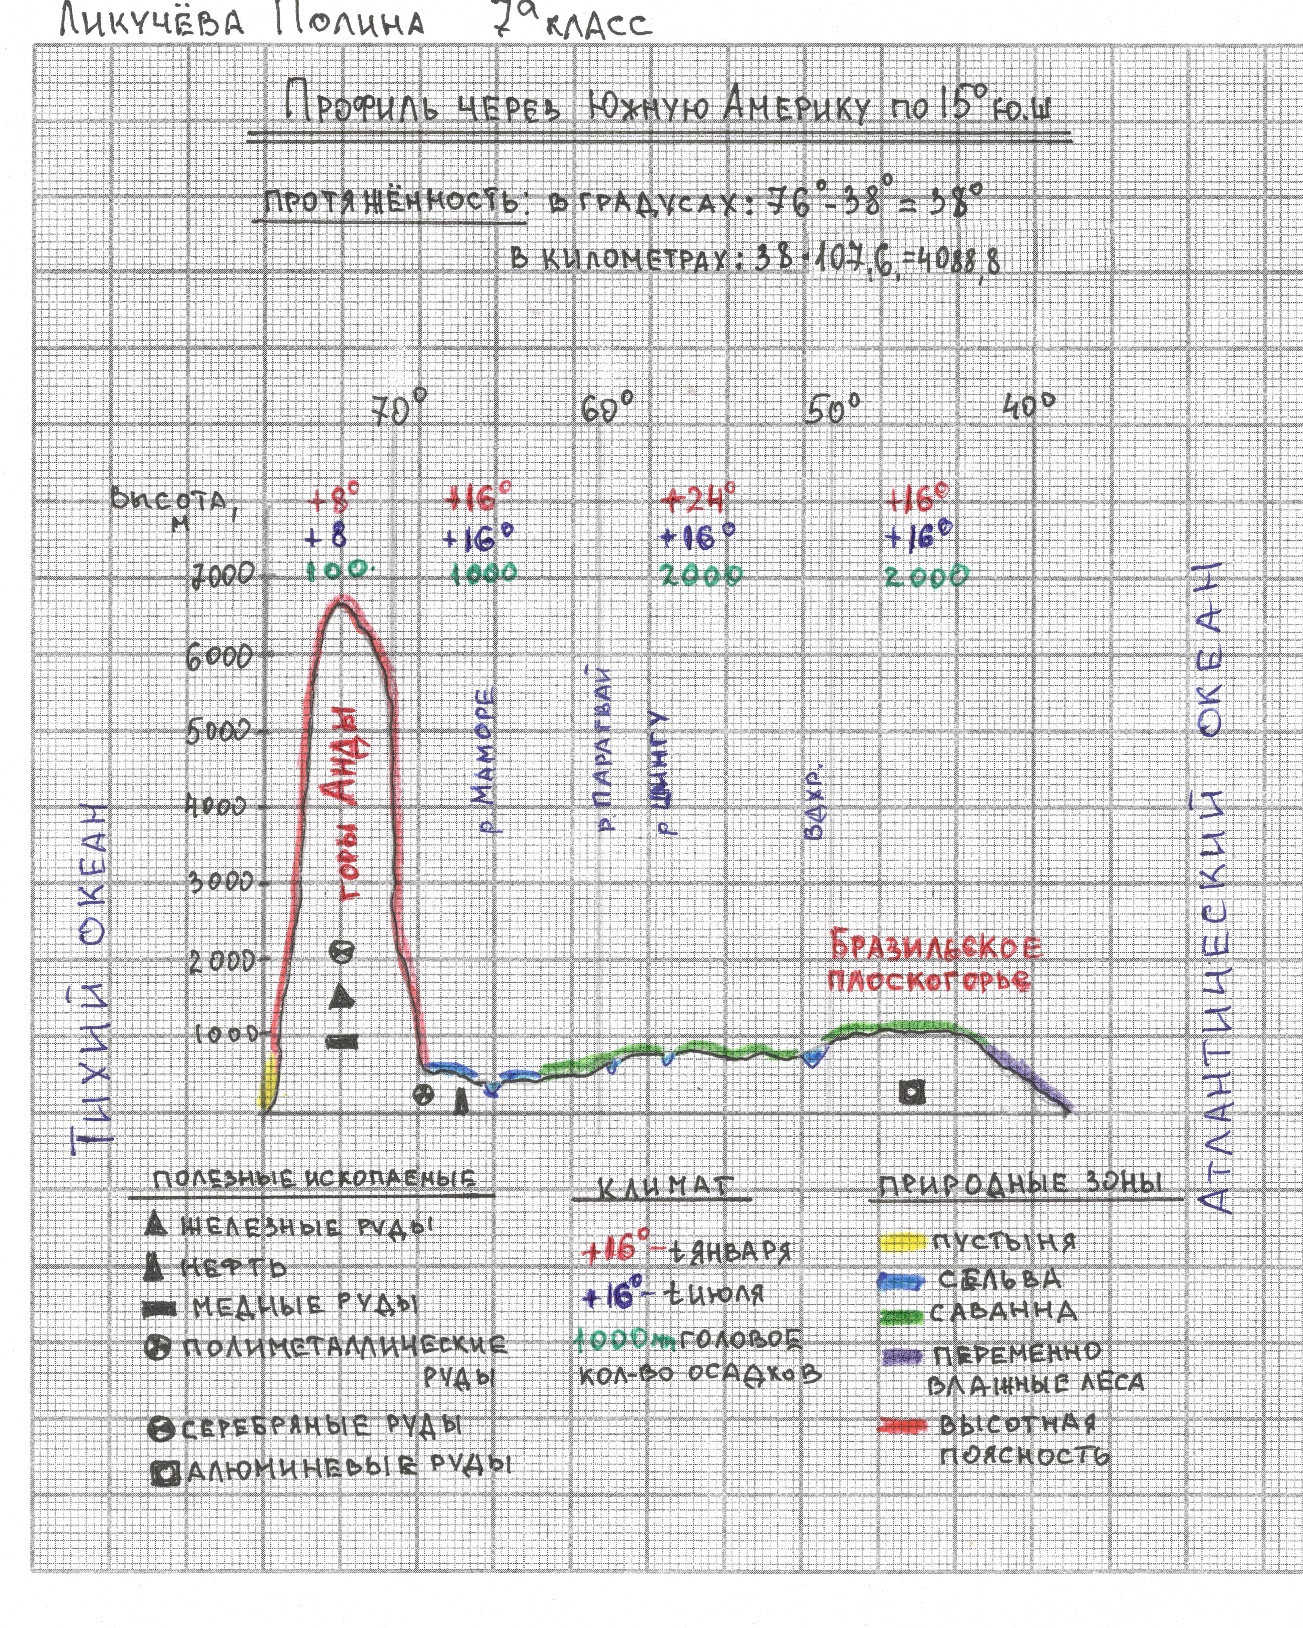 Ликучёва Полина 7а класс
Профиль через Южную Америку по 15° ю.ш
Протяжённость: в градусах: 76°-38°=38°
в километрах: 38·107,6=4088,8
70° 60° 50° 40°
Высота, м
+8° +16° +24° +16°
+8 +16° +16° +16°
100 1000 2000 2000
7000
6000
5000
4000
3000
2000
1000
Тихий океан
горы Анды
р Маморе
р Парагвай
р Шингу
вдхр.
Бразильское
плоскогорье
Атлантический океан
Полезные ископаемые
железные руды
нефть
медные руды
полиметаллические
руды
серебряные руды
алюминевые руды
Климат
+16°-t января
+16°-t июля
1000мм головое
кол-во осадков
Природные зоны
пустыня
сельва
саванна
переменно
влажные леса
высотная
поясность